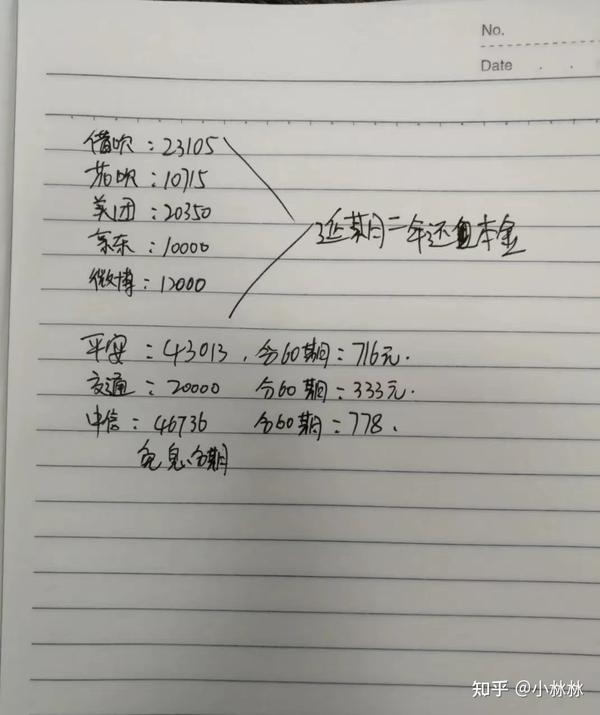 No.
Date . .
借呗：23105
花呗：10715
美团：20350
京东：10000
微博：12000
延期二年还本金
平安：43013，分60期：716元.
交通：20000 分60期：333元.
中信：46736 分60期：778.
免息分期
知乎 @小林林